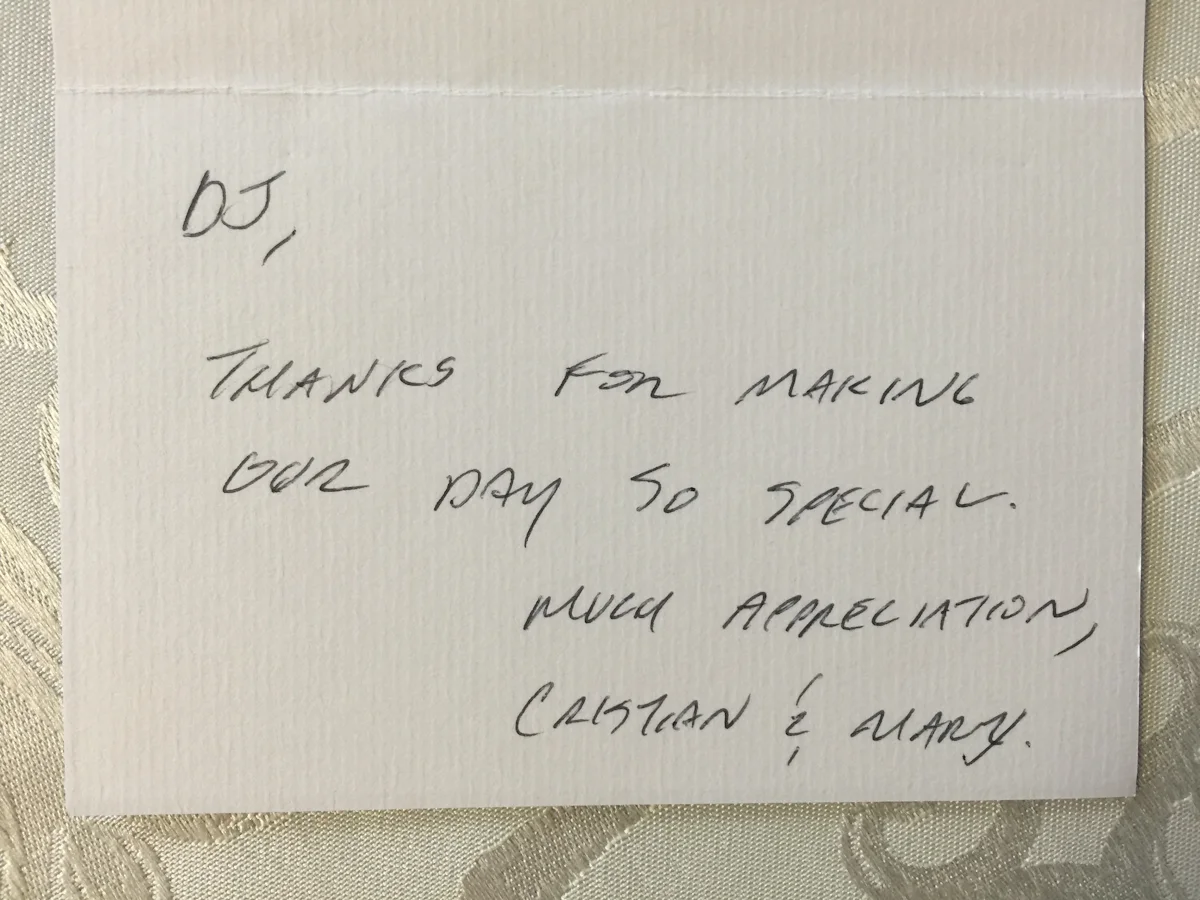 DJ,
THANKS FOR MAKING
OUR DAY SO SPECIAL.
MUCH APPRECIATION,
CRISTIAN & MARY.